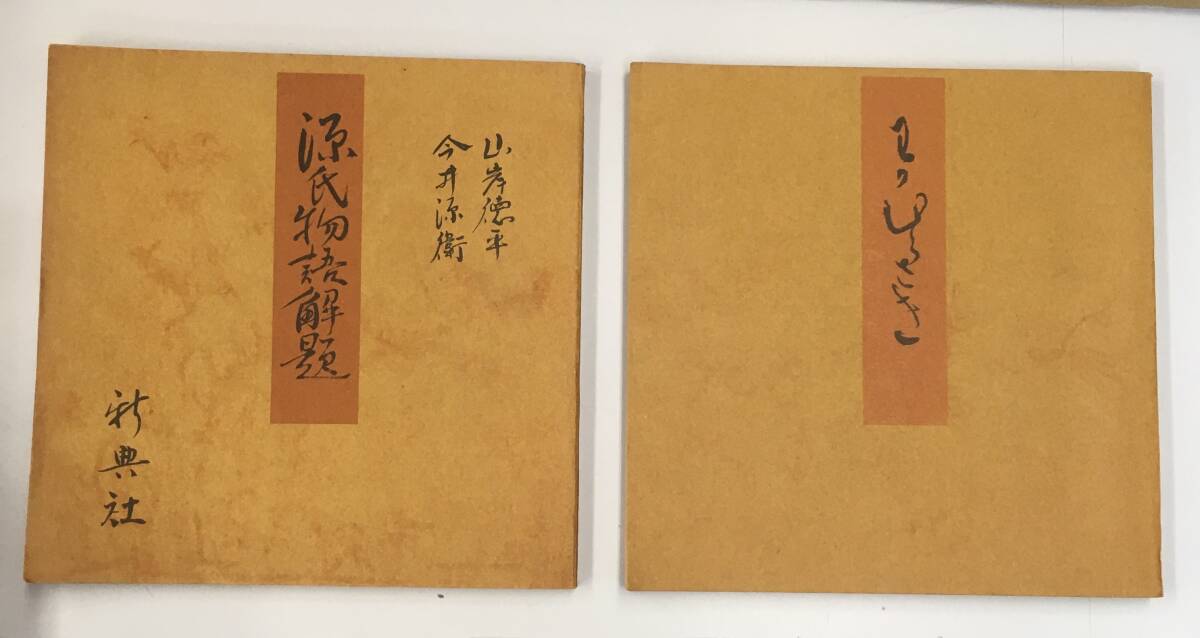 山岸徳平
今井源衛
源氏物語解題
新典社
わかむらさき